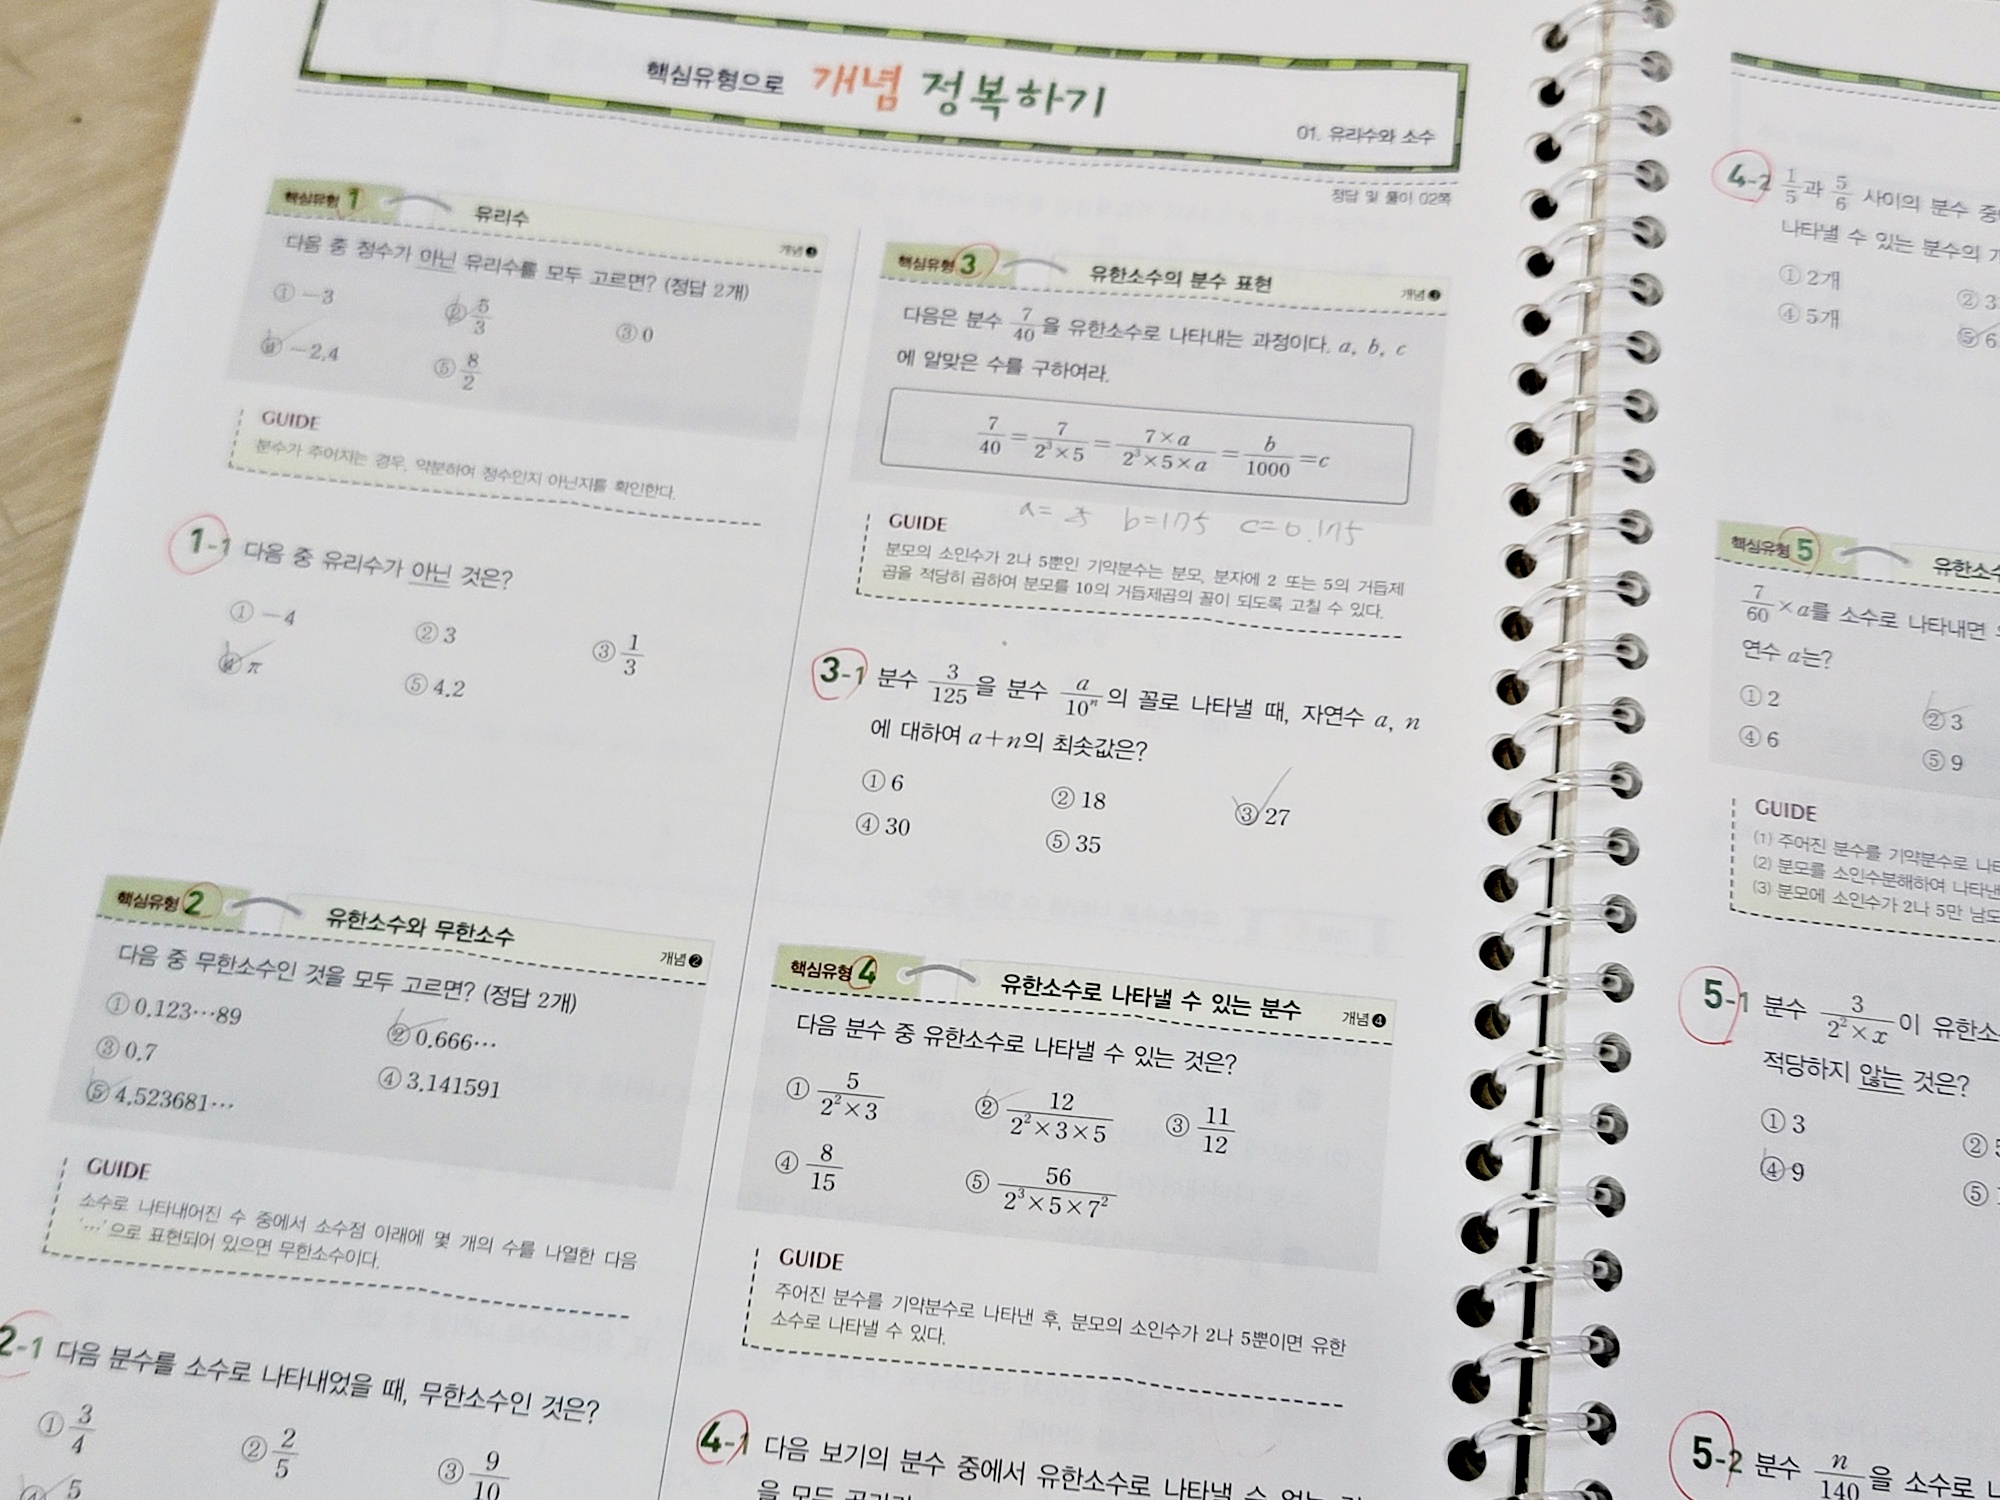 핵심유형으로 개념 정복하기
01. 유리수와 소수
정답 및 풀이 02쪽
핵심유형 1 유리수
개념 ❶
다음 중 정수가 아닌 유리수를 모두 고르면? (정답 2개)
① -3 ② 5/3 ③ 0
④ -2.4 ⑤ 8/2
GUIDE
분수가 주어지는 경우, 약분하여 정수인지 아닌지를 확인한다.
1-1 다음 중 유리수가 아닌 것은?
① -4 ② 3 ③ 1/3
④ π ⑤ 4.2
핵심유형 2 유한소수와 무한소수
개념 ❷
다음 중 무한소수인 것을 모두 고르면? (정답 2개)
① 0.123···89 ② 0.666···
③ 0.7 ④ 3.141591
⑤ 4.523681···
GUIDE
소수로 나타내어진 수 중에서 소수점 아래에 몇 개의 수를 나열한 다음
'···'으로 표현되어 있으면 무한소수이다.
2-1 다음 분수를 소수로 나타내었을 때, 무한소수인 것은?
① 3/4 ② 2/5 ③ 9/10
④ 5
핵심유형 3 유한소수의 분수 표현
개념 ❸
다음은 분수 7/40을 유한소수로 나타내는 과정이다. a, b, c
에 알맞은 수를 구하여라.
7/40 = 7/(2³×5) = (7×a)/(2³×5×a) = b/1000 = c
a= 25 b=175 c=0.175
GUIDE
분모의 소인수가 2나 5뿐인 기약분수는 분모, 분자에 2 또는 5의 거듭제
곱을 적당히 곱하여 분모를 10의 거듭제곱의 꼴이 되도록 고칠 수 있다.
3-1 분수 3/125을 분수 a/10ⁿ의 꼴로 나타낼 때, 자연수 a, n
에 대하여 a+n의 최솟값은?
① 6 ② 18 ③ 27
④ 30 ⑤ 35
핵심유형 4 유한소수로 나타낼 수 있는 분수
개념 ❹
다음 분수 중 유한소수로 나타낼 수 있는 것은?
① 5/(2²×3) ② 12/(2²×3×5) ③ 11/12
④ 8/15 ⑤ 56/(2³×5×7²)
GUIDE
주어진 분수를 기약분수로 나타낸 후, 분모의 소인수가 2나 5뿐이면 유한
소수로 나타낼 수 있다.
4-1 다음 보기의 분수 중에서 유한소수로 나타낼 수 없는
을 모두
4-2 1/5과 5/6 사이의 분수
나타낼 수 있는 분수의
① 2개 ② 3
④ 5개 ⑤ 6
핵심유형 5
7/60×a를 소수로 나타내면
연수 a는?
① 2 ② 3
④ 6 ⑤ 9
GUIDE
(1) 주어진 분수를 기약분수로
(2) 분모를 소인수분해하여
(3) 분모에 소인수가 2나 5만
5-1 분수 3/(2²×x)이
적당하지 않는 것은?
① 3 ②
④ 9 ⑤
5-2 분수 n/140을 소수로